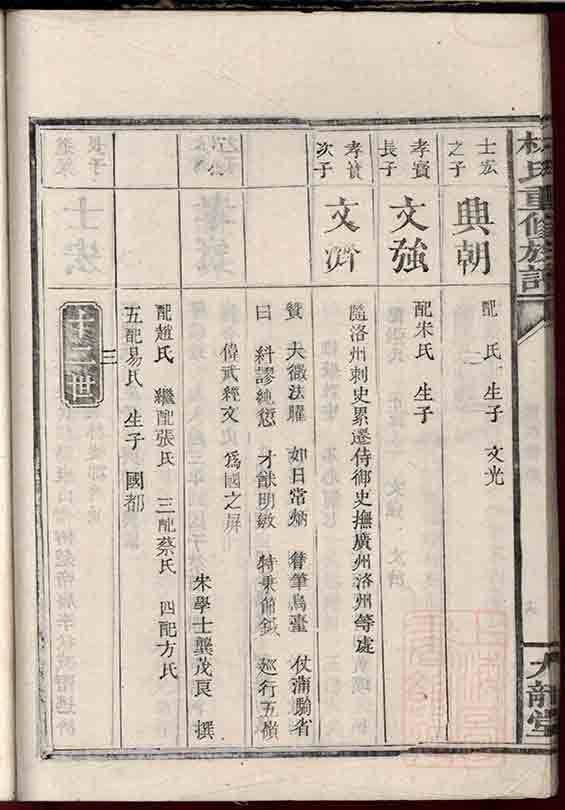 杜氏重修族譜
大龍堂
士宏
之子
典朝
配 氏 生子 文光
孝賓
長子
文強
配朱氏 生子
孝賓
次子
文濟
隨洛州刺史累遷侍御史撫廣州洛州等處
贊 大微法曜 如日常炳 簪筆烏臺 仗蒲驄省
曰 糾謬繩愆 才猷明敏 特秉節鉞 巡行五嶺
偉武經文 為國之屏
朱學士龔茂良 撰
配趙氏 繼配張氏 三配蔡氏 四配方氏
五配易氏 生子 國都
三
世